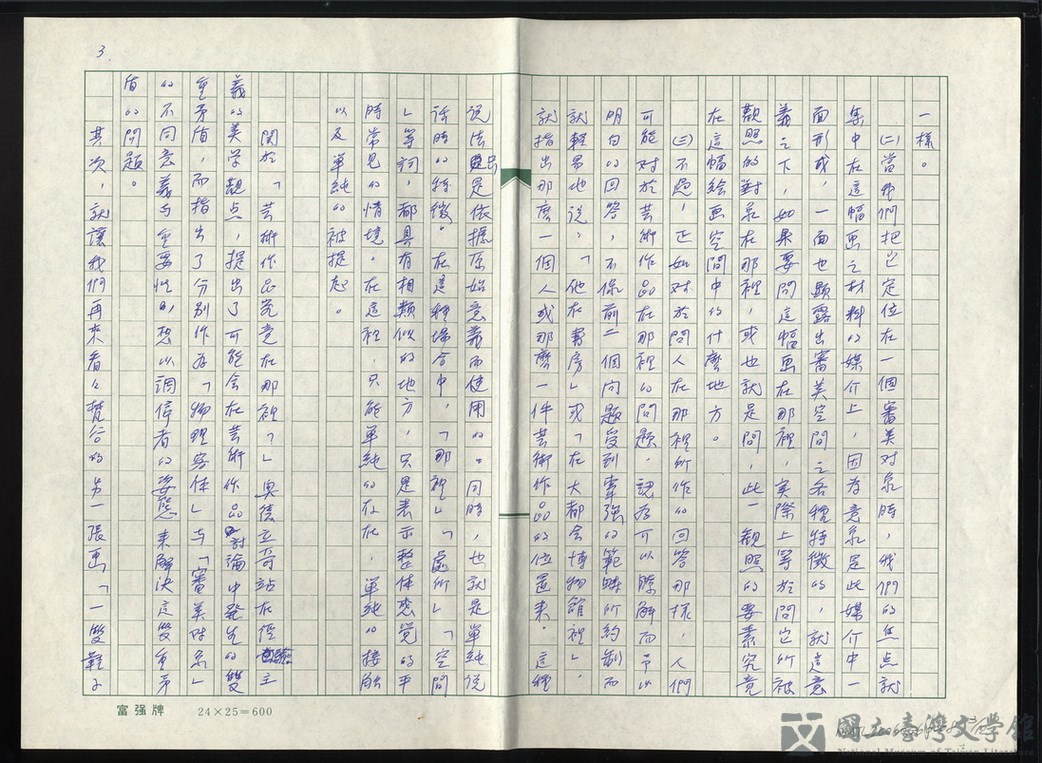 3.
一樣。
(二)當我們把它定位在一個審美对象時，我們的焦点就
集中在這幅画之材料的媒介上，因為意象是此媒介中一
面形成，一面也顯露出審美空間之各種特徵的，就這意
義之下，如果要問這幅画在那裡，实際上等於問它所被
觀照的對象在那裡，或也就是問，此一觀照的要素究竟
在這幅绘画空間中的什麼地方。
(三)不過，正如对於問人在那裡所作的回答那樣，人們
可能对於芸術作品在那裡的問題，認為可以瞭解而予以
明白的回答，不像前二個問題受到牽强的範疇所約制而
就輕易地说：「他在書房」或「在大都会博物館裡」，
就指出那麼一個人或那麼一件芸術作品的位置来。這種
说法是依據原始意義而使用的。同時，也就是單純说
话時的特徵。在這種場合中，「那裡」「處所」「空間
」等詞，都具有相類似的地方，只是表示整体感覚的平
時常見的情境。在這裡，只能單純的存在，單純的接触
以及單純的被提起。
関於「芸術作品究竟在那裡」奥德立奇站在徑主
義的美学觀点，提出了可能会在芸術作品討論中発生的雙
重矛盾，而指出了分別作為「物理客体」与「審美对象」
的不同意義与重要性，想以調停者的姿態来解決這雙重矛
盾的問題。
其次，就讓我們再来看々梵谷的另一張画「一雙鞋子
富强牌　24×25=600
國立臺灣文學館
National Museum of Taiwan Literature